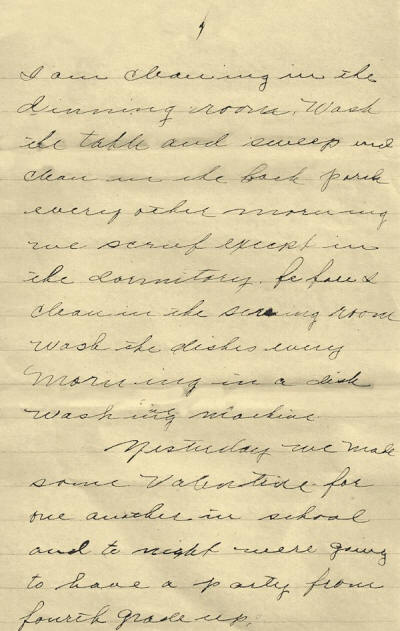 I am cleaning in the
dinning room. Wash
the table and sweep and
clean in the back porch
every other morning
we scruf except in
the dormitory. before I
clean in the serving room
Wash the dishes every
Morning in a dish
washing machine
Yesterday we made
some Valentine for
one another in school
and to night were going
to have a party from
fourth grade up.